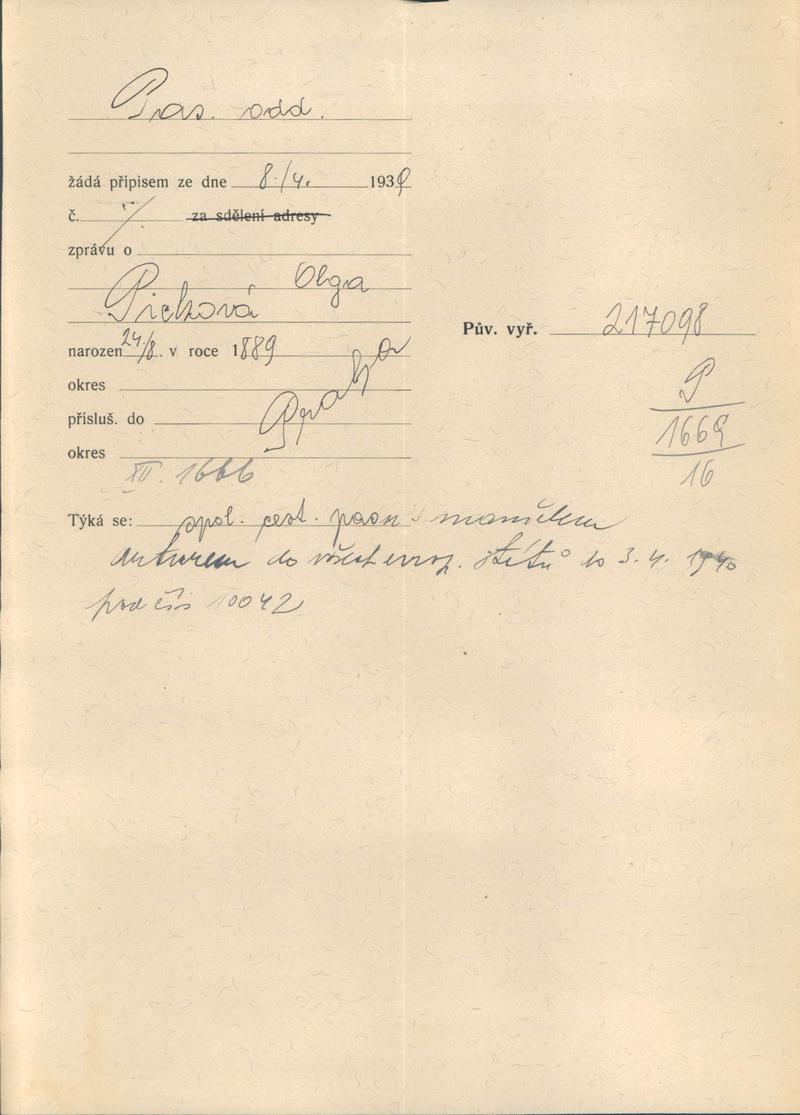 Pas. odd.
žádá přípisem ze dne 8./4. 1939
č. ./. za sdělení adresy
zprávu o
Olga
Picková
narozen 24/8. v roce 1889
Pův. vyř. 217098
okres
přísluš. do Praha
okres
P
1669
16
XII. 1666
Týká se: spol. cest. pasu s manželem
Arturem do všech evrop. států do 3. 4. 1940
pod čís 10042